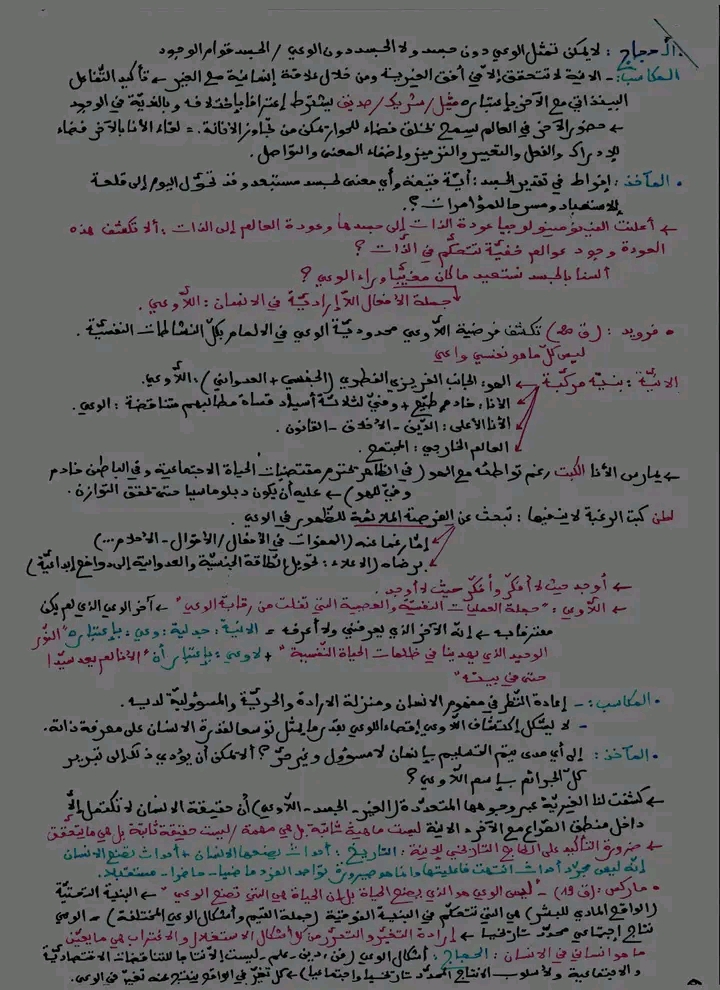 الحجاج : لا يمكن تمثل الوعي دون جسد ولا الجسد دون الوعي / الجسد قوام الوجود
المكاسب : - الانية لا تتحقق إلا في أفق الغيرية ومن خلال علاقة إنسانية مع الغير ← تأكيد التفاعل
البينذاتي مع الآخر بإعتباره مثيل/شريك/صديق يشترط إعترافا بإختلافه وبالغيرية في الوجود
← حضور الآخر في العالم يسمح بخلق فضاء للحوار يمكن من تجاوز الأنانة. = لقاء الأنا بالآخر فضاء
للإدراك والفعل والتعبير والترميز وإضفاء المعنى والتواصل.
• المآخذ : إفراط في تقدير الجسد : أية قيمة وأي معنى لجسد مستبعد وقد تحول اليوم إلى قلعة
للاستعباد ومسرحا للمؤامرات ؟.
← أعلنت الفينومينولوجيا عودة الذات إلى جسدها وعودة العالم إلى الذات : ألا تكشف هذه
العودة وجود عوالم خفية تتحكم في الذات ؟
ألسنا بالجسد نستعيد ما كان مغيبا وراء الوعي ؟
جملة الأفعال اللاإرادية في الانسان : اللاوعي.
• فرويد : (ق 20) تكشف فرضية اللاوعي محدودية الوعي في الالمام بكل النشاطات النفسية.
ليس كل ما هو نفسي واعي
الانية : بنية مركبة ← الهو : الجانب الغريزي الفطري (الجنسي + العدواني) : اللاوعي.
الأنا : خادم مطيع + وفي لثلاثة أسياد قساة مطالبهم متناقضة : الوعي.
الأنا الأعلى : الدين - الأخلاق - القانون.
العالم الخارجي : المجتمع.
← يمارس الأنا الكبت رغم تواطئه مع الهو (في الظاهر يحترم مقتضيات الحياة الاجتماعية وفي الباطن خادم
وفي للهو) ← عليه أن يكون دبلوماسيا حتى يحقق التوازن.
لكن كبت الرغبة لا ينفيها : تبحث عن الفرصة الملائمة للظهور في الوعي.
إما رغما عنه (الهفوات في الأفعال/الأقوال - الأحلام ...)
برضاه (الاعلاء : تحويل الطاقة الجنسية والعدوانية إلى دوافع إبداعية)
← أوجد حيث لا أفكر وأفكر حيث لا أوجد.
← اللاوعي : "جملة العمليات النفسية والعصبية التي تفلت من رقابة الوعي" ← آخر الوعي الذي لم يكن
معترفا به ← إنه الآخر الذي يعرفني ولا أعرفه = الانية : جدلية : وعي : بإعتباره "النور
الوحيد الذي يهدينا في ظلمات الحياة النفسية" + لاوعي : بإعتبار أن "الأنا لم يعد سيدا
حتى في بيته"
• المكاسب : - إعادة النظر في مفهوم الانسان ومنزلة الارادة والحرية والمسؤولية لديه.
- لا يشكل إكتشاف اللاوعي إقصاء للوعي بقدر ما يمثل توسعا لقدرة الانسان على معرفة ذاته.
• المآخذ : إلى أي مدى يتم التسليم بإنسان لا مسؤول وغير حر ؟ ألا يمكن أن يؤدي ذلك إلى تبرير
كل الجرائم بإسم اللاوعي ؟
← كشفت لنا الغيرية عبر وجوهها المتعددة (الغير - الجسد - اللاوعي) أن حقيقة الانسان لا تكتمل إلا
داخل منطق الصراع مع الآخر. الانية ليست ماهية ثابتة بل هي مهمة / ليست حقيقة ثابتة بل هي ما يتحقق
← ضرورة التأكيد على الطابع التاريخي للإنية : التاريخ : أحداث يصنعها الانسان + أحداث تصنع الانسان
إنه ليس مجرد أحداث انتهت فاعليتها وإنما هو صيرورة تواجد الفرد ماضيا - حاضرا - مستقبلا.
• ماركس : (ق 19) - "ليس الوعي هو الذي يصنع الحياة بل إن الحياة هي التي تصنع الوعي" ← البنية التحتية
(الواقع المادي للبشر) هي التي تتحكم في البنية الفوقية (جملة القيم وأشكال الوعي المختلفة) = الوعي
نتاج إجتماعي محدد تاريخيا ← إرادة التغير والتحرر من كل أشكال الاستغلال والاغتراب هي ما يعين
ما هو إنساني في الانسان : الحجاج : أشكال الوعي (فن، دين، علم - ليست إلا نتاجا للتناقضات الاقتصادية
والاجتماعية ولأسلوب الانتاج المحدد تاريخيا وإجتماعيا) ← كل تغير في الواقع ينتج عنه تغير في الوعي.